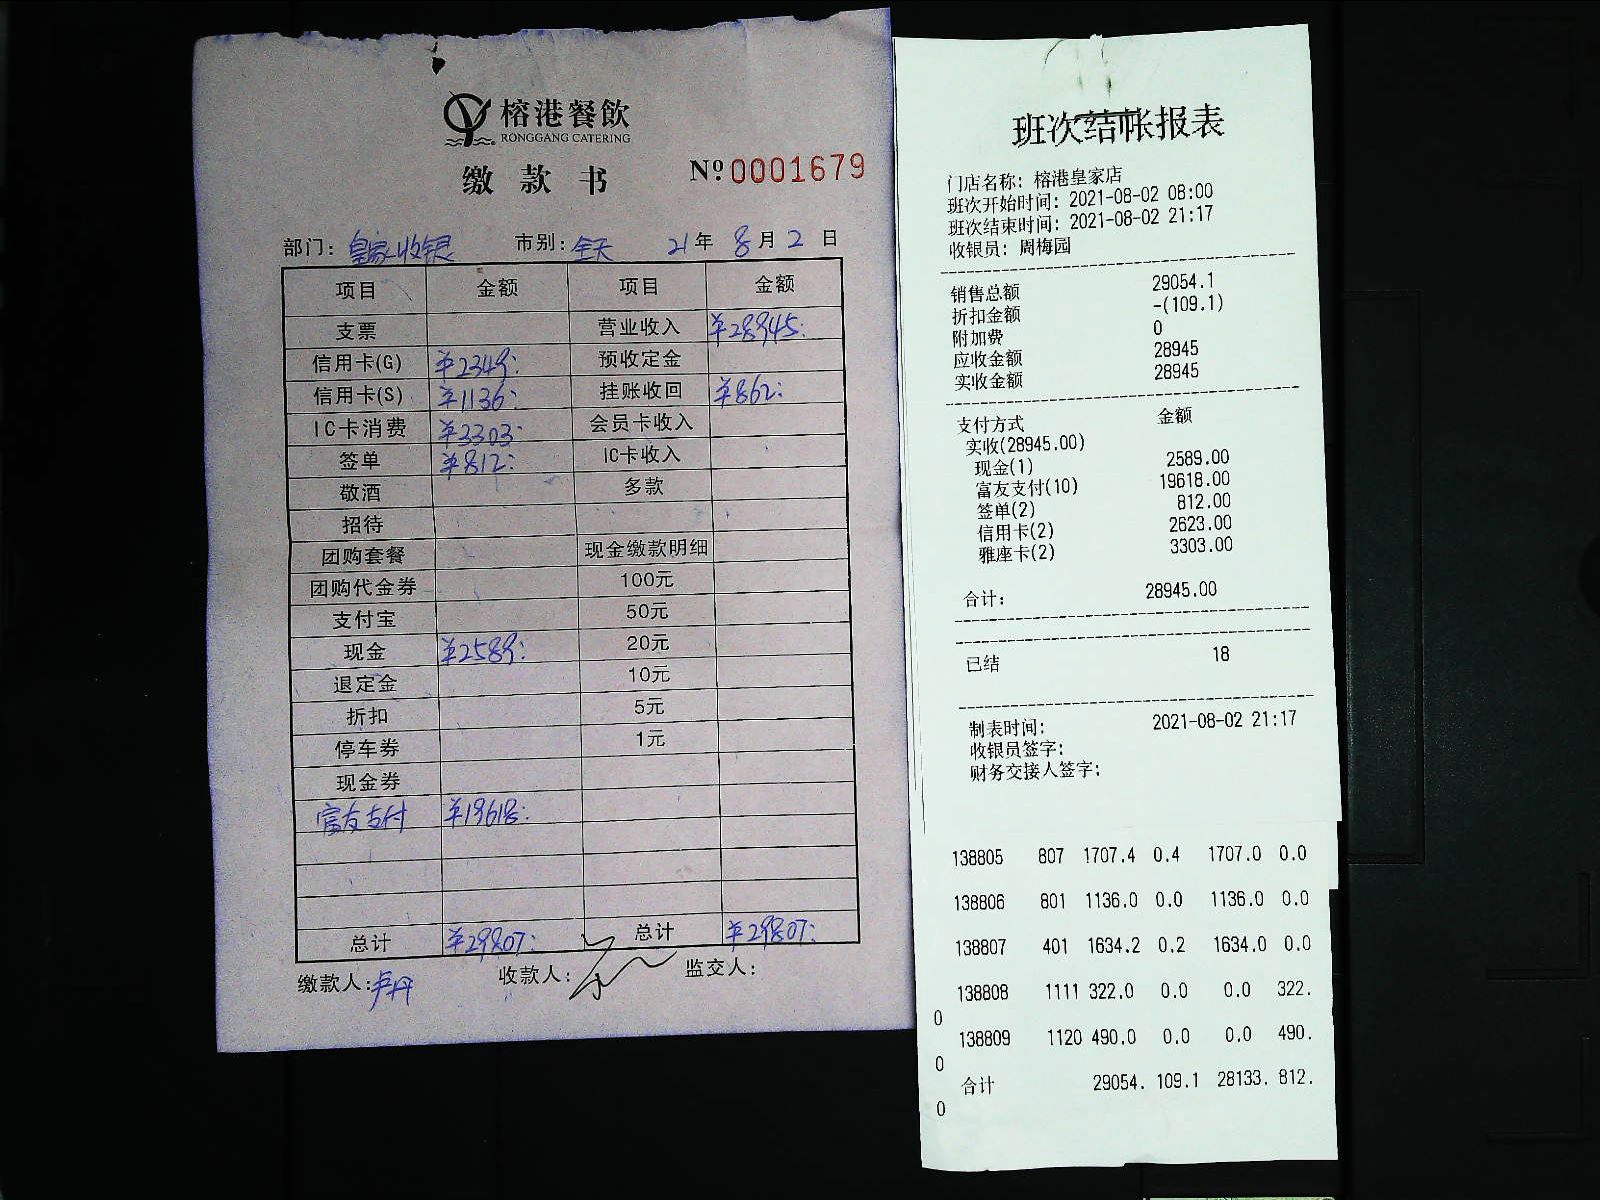 榕港餐飲
RONGGANG CATERING
缴款书
Nº 0001679
部门: 皇家收银 市别: 全天 21年 8月 2日
项目 金额 项目 金额
支票 营业收入 ¥28945:
信用卡(G) ¥2349: 预收定金
信用卡(S) ¥1136: 挂账收回 ¥862:
IC卡消费 ¥3303: 会员卡收入
签单 ¥812: IC卡收入
敬酒 多款
招待
团购套餐 现金缴款明细
团购代金券 100元
支付宝 50元
现金 ¥2589: 20元
退定金 10元
折扣 5元
停车券 1元
现金券
富友支付 ¥19618:
总计 ¥29807: 总计 ¥29807:
缴款人: 卢丹 收款人: 监交人:
班次结帐报表
门店名称: 榕港皇家店
班次开始时间: 2021-08-02 08:00
班次结束时间: 2021-08-02 21:17
收银员: 周梅园
销售总额 29054.1
折扣金额 -(109.1)
附加费 0
应收金额 28945
实收金额 28945
支付方式 金额
实收(28945.00)
现金(1) 2589.00
富友支付(10) 19618.00
签单(2) 812.00
信用卡(2) 2623.00
雅座卡(2) 3303.00
合计: 28945.00
已结 18
制表时间: 2021-08-02 21:17
收银员签字:
财务交接人签字:
138805 807 1707.4 0.4 1707.0 0.0
138806 801 1136.0 0.0 1136.0 0.0
138807 401 1634.2 0.2 1634.0 0.0
138808 1111 322.0 0.0 0.0 322.
0
138809 1120 490.0 0.0 0.0 490.
0
合计 29054. 109.1 28133. 812.
0